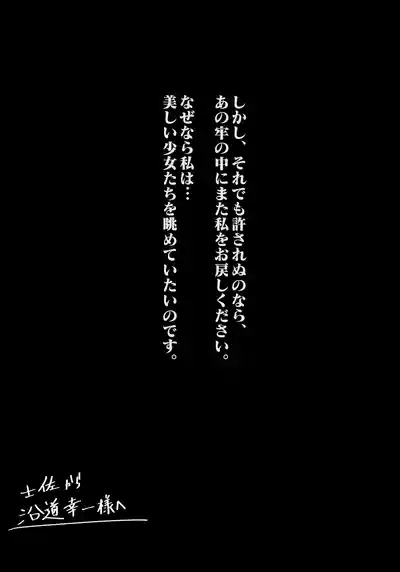 しかし、それでも許されぬのなら、
あの牢の中にまた私をお戻しください。
なぜなら私は…
美しい少女たちを眺めていたいのです。
土佐から
沿道幸一様へ